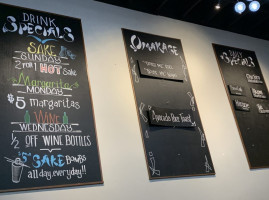 DRINK
SPECIALS
SAKE
SUNDAY
2 FOR 1 HOT SAKE
Margarita
MONDAY
$5 margaritas
WINE
WEDNESDAY
1/2 OFF WINE BOTTLES
$5 SAKE BOMBS
all day, everyday!!
OMAKASE
Avocado Bae Toast
DAILY
SPECIALS